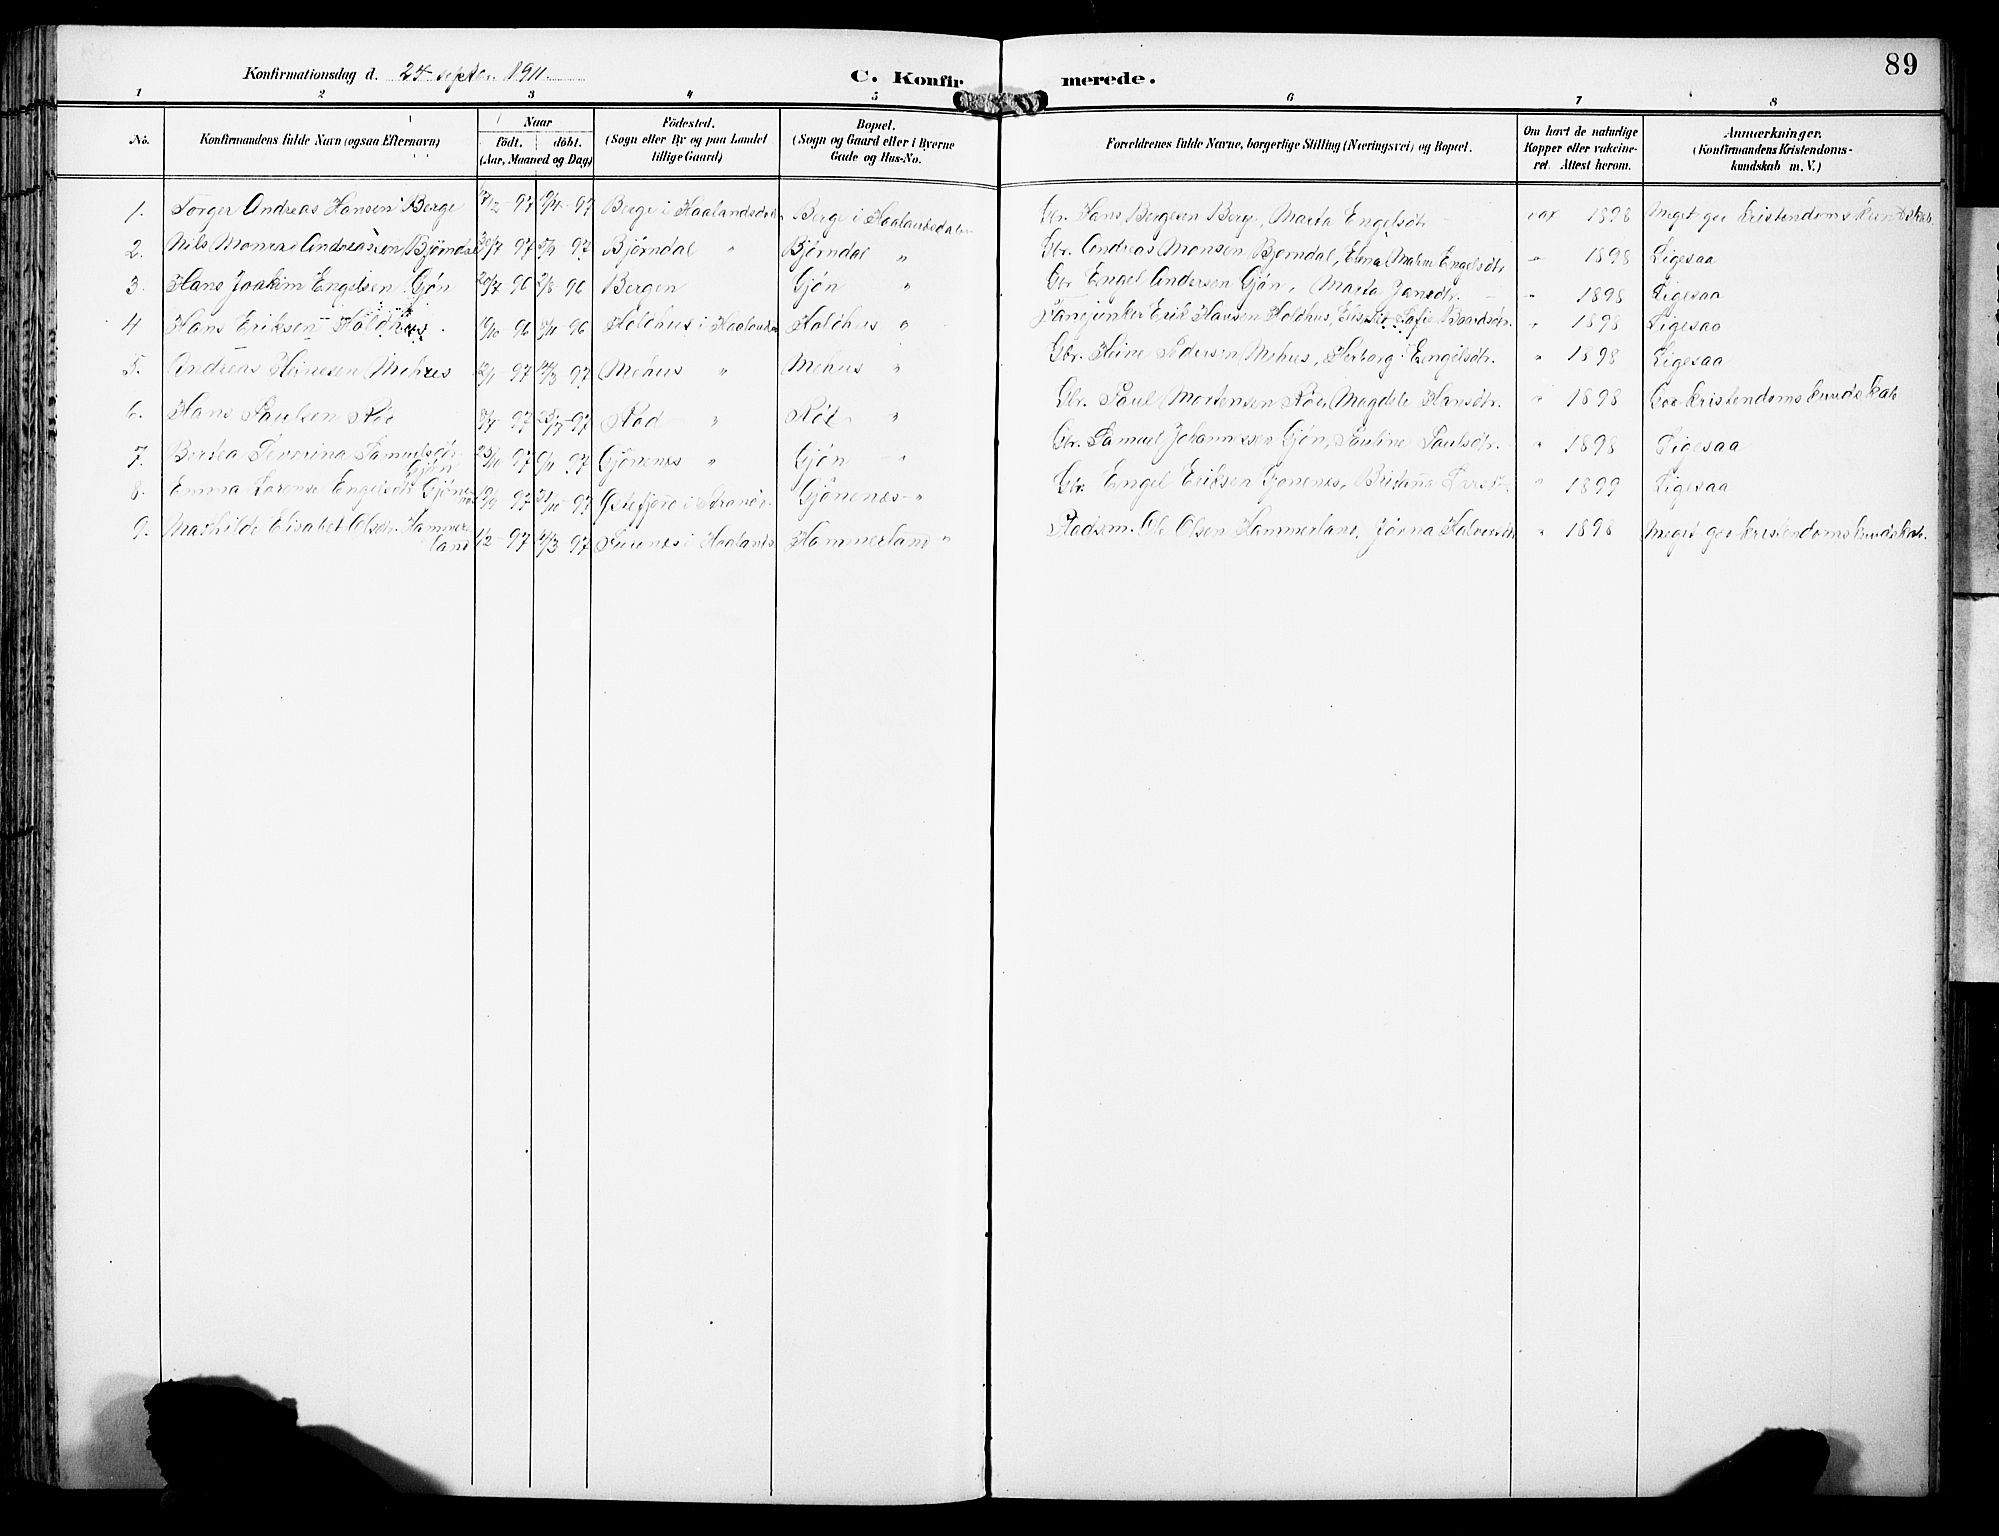 89
Konfirmationsdag d. 24 septbr. 1911.
C. Konfirmerede.
1 2 3 4 5 6 7 8
No.
Konfirmandens fulde Navn (ogsaa Efternavn)
Naar
födt. döbt.
(Aar, Maaned og Dag)
Födested.
(Sogn eller By og paa Landet
tillige Gaard)
Bopæl.
(Sogn og Gaard eller i Byerne
Gade og Hus-No.
Forældrenes fulde Navne, borgerlige Stilling (Næringsvei) og Bopæl.
Om havt de naturlige
Kopper eller vakcine-
ret. Attest herom.
Anmærkninger.
(Konfirmandens Kristendoms-
kundskab m. V.)
1. Torger Andreas Hansen Berge 97 97 Berge i Haalandsdalen Berge i Haalandsdalen Gbr. Hans Bergesen Berge, Marta Engelsdtr vax 1898 Meget god Kristendomskundskab
2. Nils Monsen Andreassen Björndal 97 97 Björndal " Björndal " Gbr. Andreas Monsen Björndal, Engelsdtr " 1898 Ligesaa
3. Hans Joakim Engelsen Gjön 96 2/8 96 Bergen Gjön " Gbr Engel Andersen Gjön, Marta Jansdtr. " 1898 Ligesaa
4 Hans Eriksen Holdhus 96 96 Holdhus i Haalandsd. Holdhus " Fanejunker Erik Hansen Holdhus, Sofie Baardsdtr. " 1898 Ligesaa
5. Andreas Heinesen Mehus 97 97 Mehus " Mehus " Gbr. Heine Pedersen Mehus, Herborg Engelsdtr. " 1898 Ligesaa
6. Hans Paulsen Röd 97 97 Röd " Röd " Gbr. Paul Mortensen Röd, Magdele Hansdtr. " 1898 God kristendomskundskab
7. Bertea Severina Samuelsdtr. Gjön 97 97 Gjönenes " Gjön " Gbr. Samuel Johannessen Gjön, Pauline Paulsdtr. " 1898 Ligesaa
8. Emma Lorense Engelsdtr Gjönenes 97 97 i Strandv. Gjönenes " Gbr. Engel Eriksen Gjönenes, " 1899 Ligesaa
9. Mathilde Elisabet Olsdtr. Hammerland 97 97 i Haalandsd. Hammerland " Pladsm. Ole Olsen Hammerland, Jörna Halvorsdtr " 1898 Meget god kristendomskundskab.